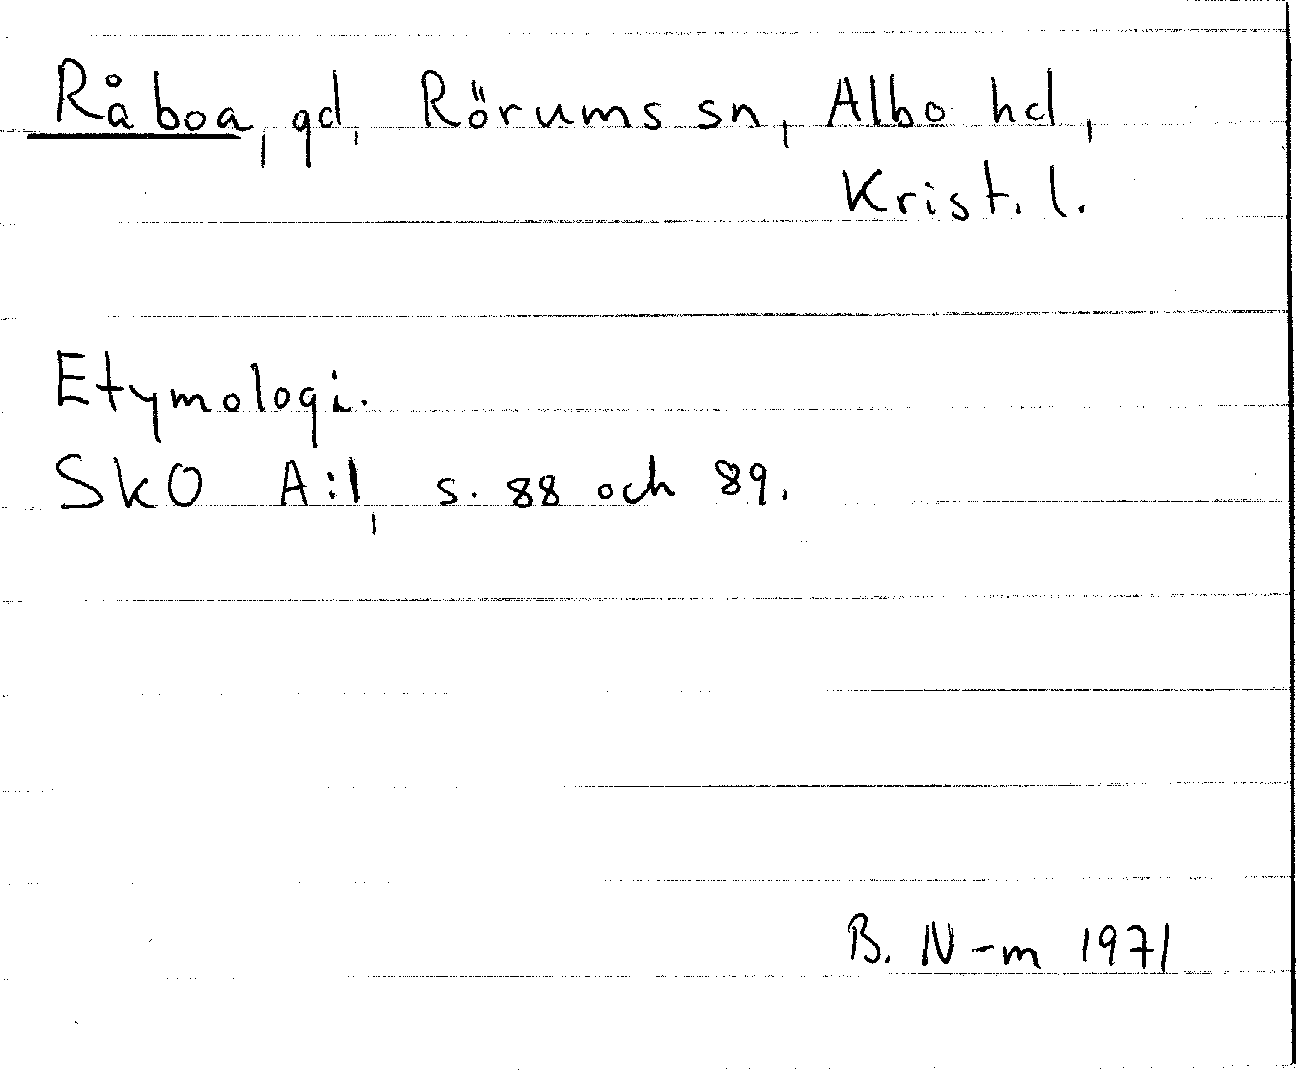 Råboa, gd, Rörums sn, Albo hd,
Krist. l.
Etymologi.
SkO A:1, s. 88 och 89.
B. N-m 1971